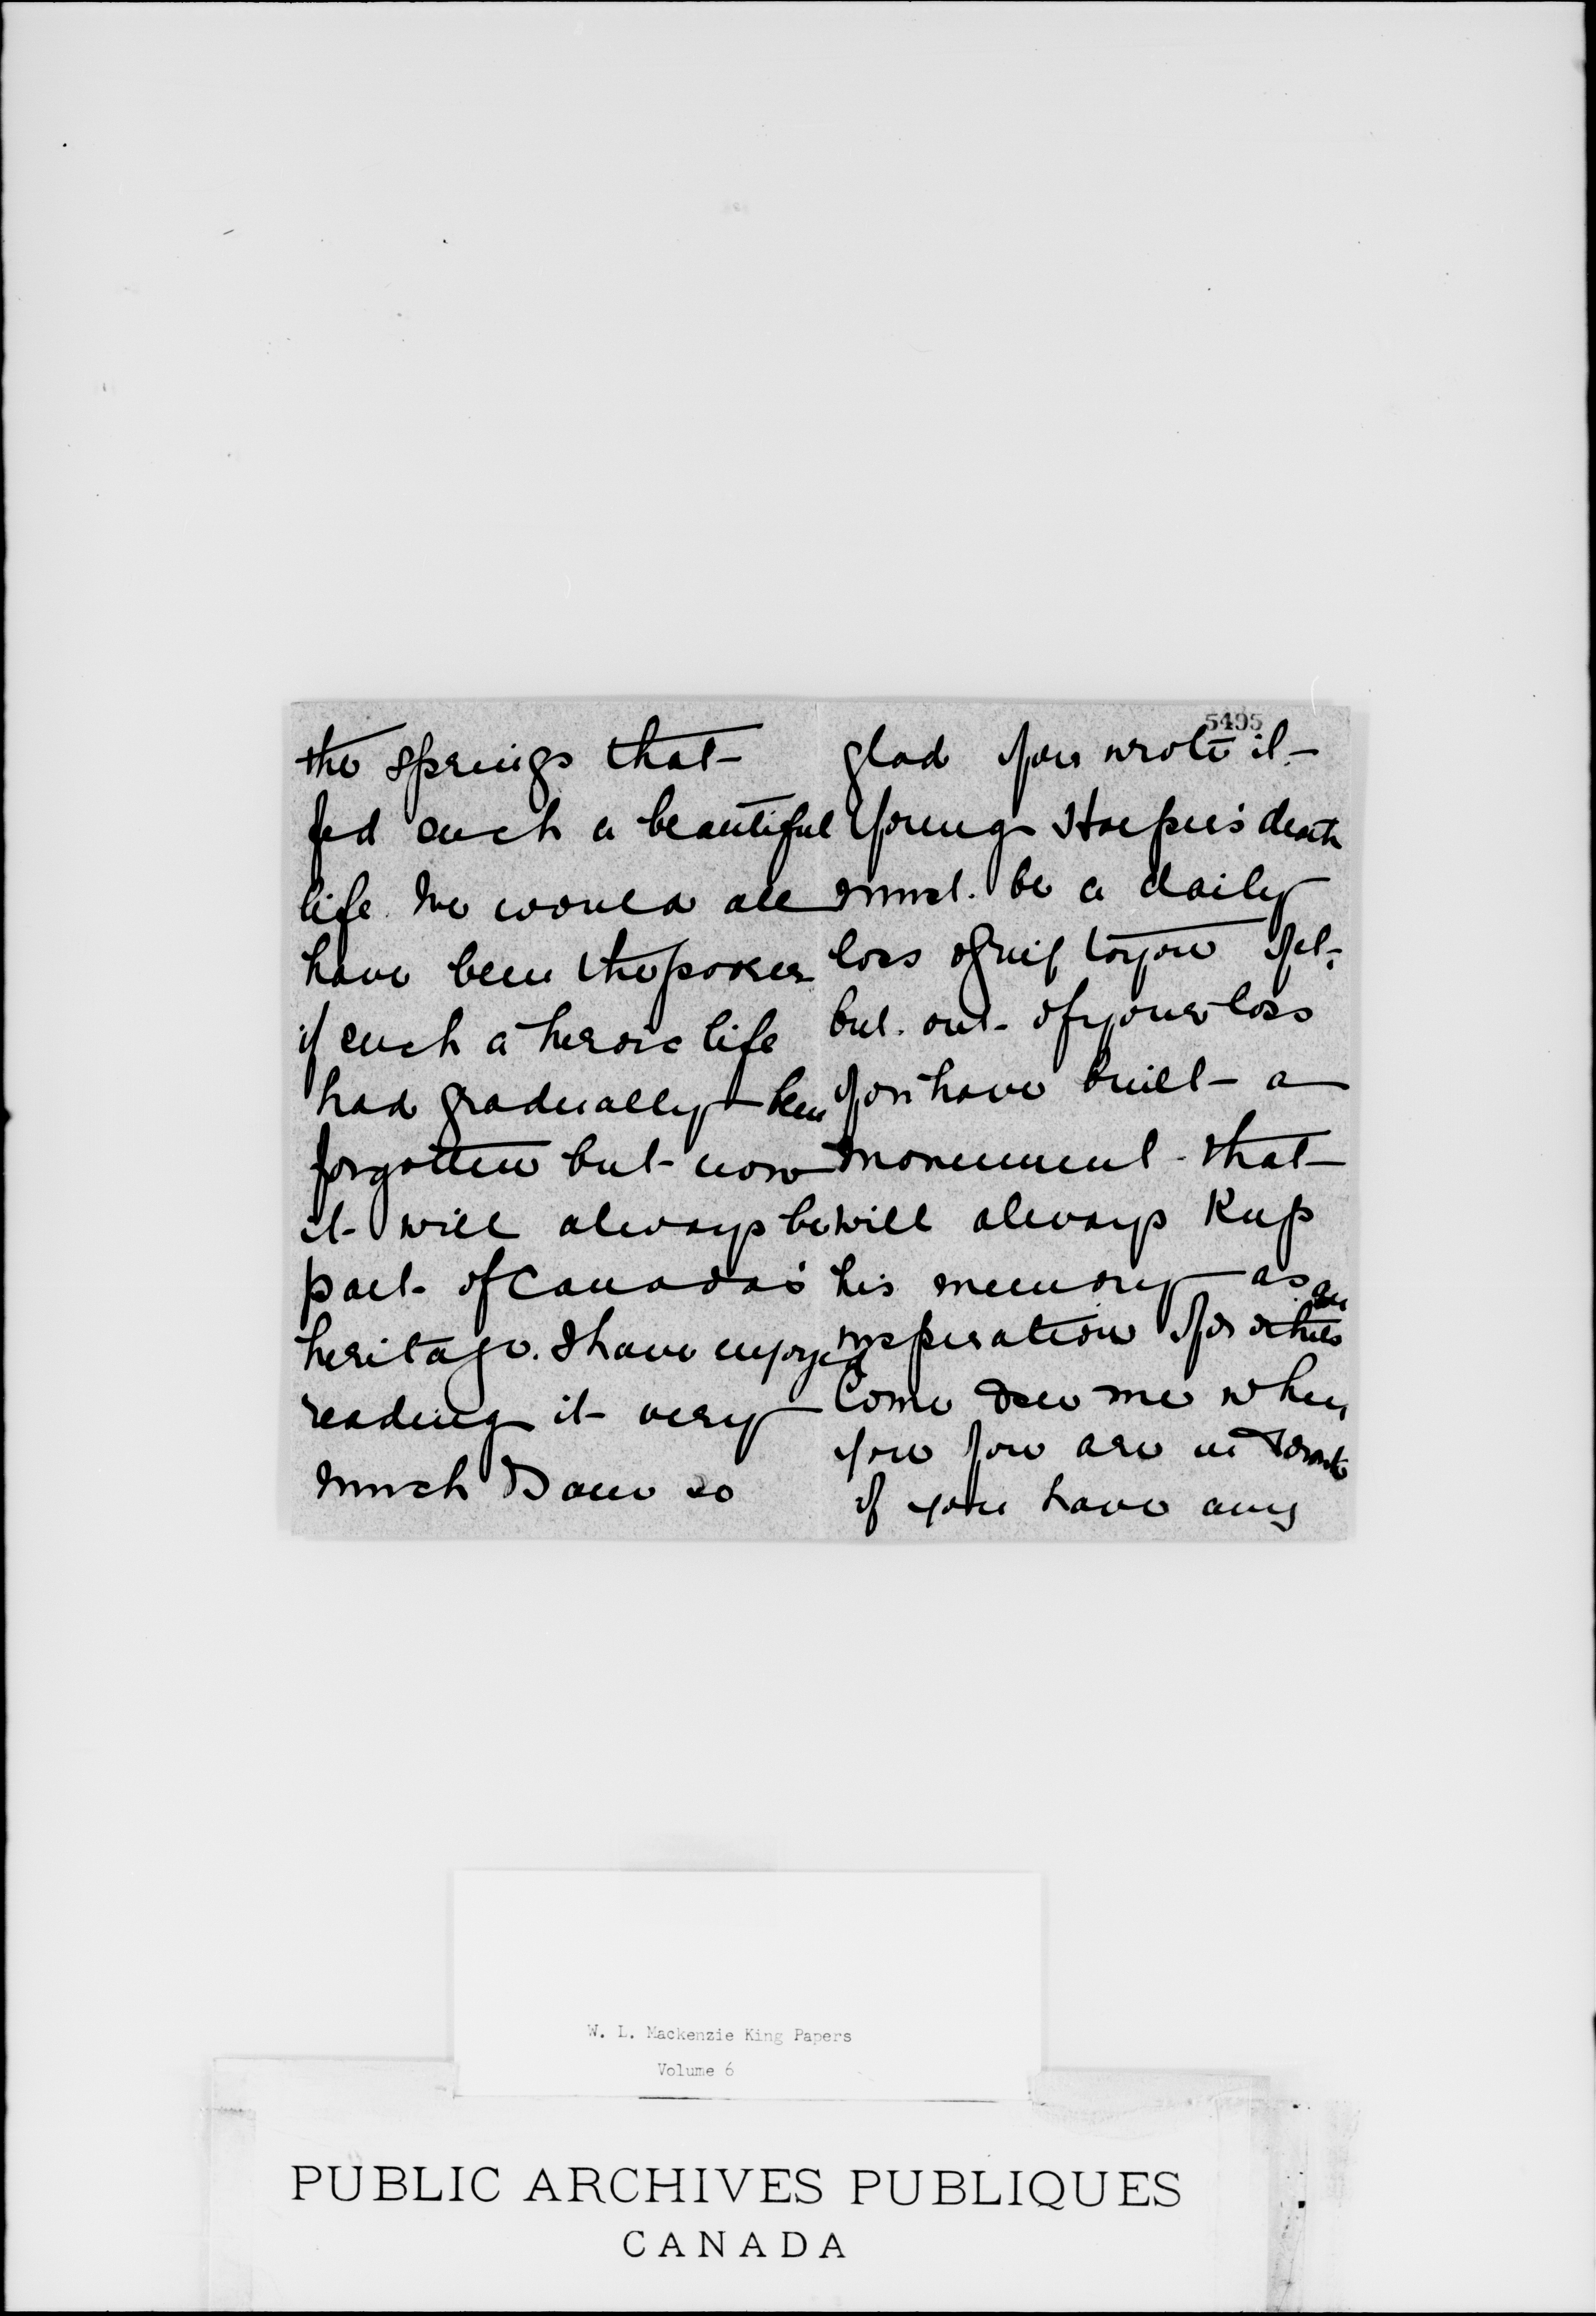 the springs that
fed such a beautiful
life. We would all
have been the poorer
if such a heroic life
had gradually been
forgotten but now
it will always be
part of Canada's
heritage. I have enjoyed
reading it very
much & am so
5495
glad you wrote it
Young Harper's death
must be a daily
loss to you yet,
but out of your loss
you have built a
monument that
will always keep
his memory as an
inspiration for others
Come & see me when
you you are in Toronto
if you have any
W. L. Mackenzie King Papers
Volume 6
PUBLIC ARCHIVES PUBLIQUES
CANADA